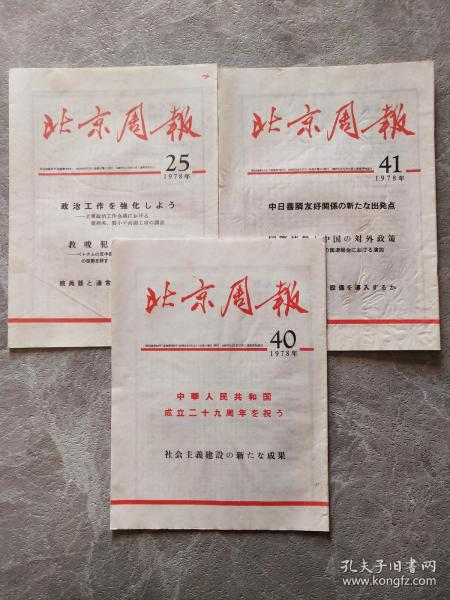 北京周報
25
1978年
政治工作を強化しよう
——全軍政治工作会議における
教唆犯
核兵器と通常
北京周報
41
1978年
中日善隣友好関係の新たな出発点
中国の対外政策
設備を導入するか
北京周報
40
1978年
中華人民共和国
成立二十九周年を祝う
社会主義建設の新たな成果
孔夫子旧书网
www.kongfz.com